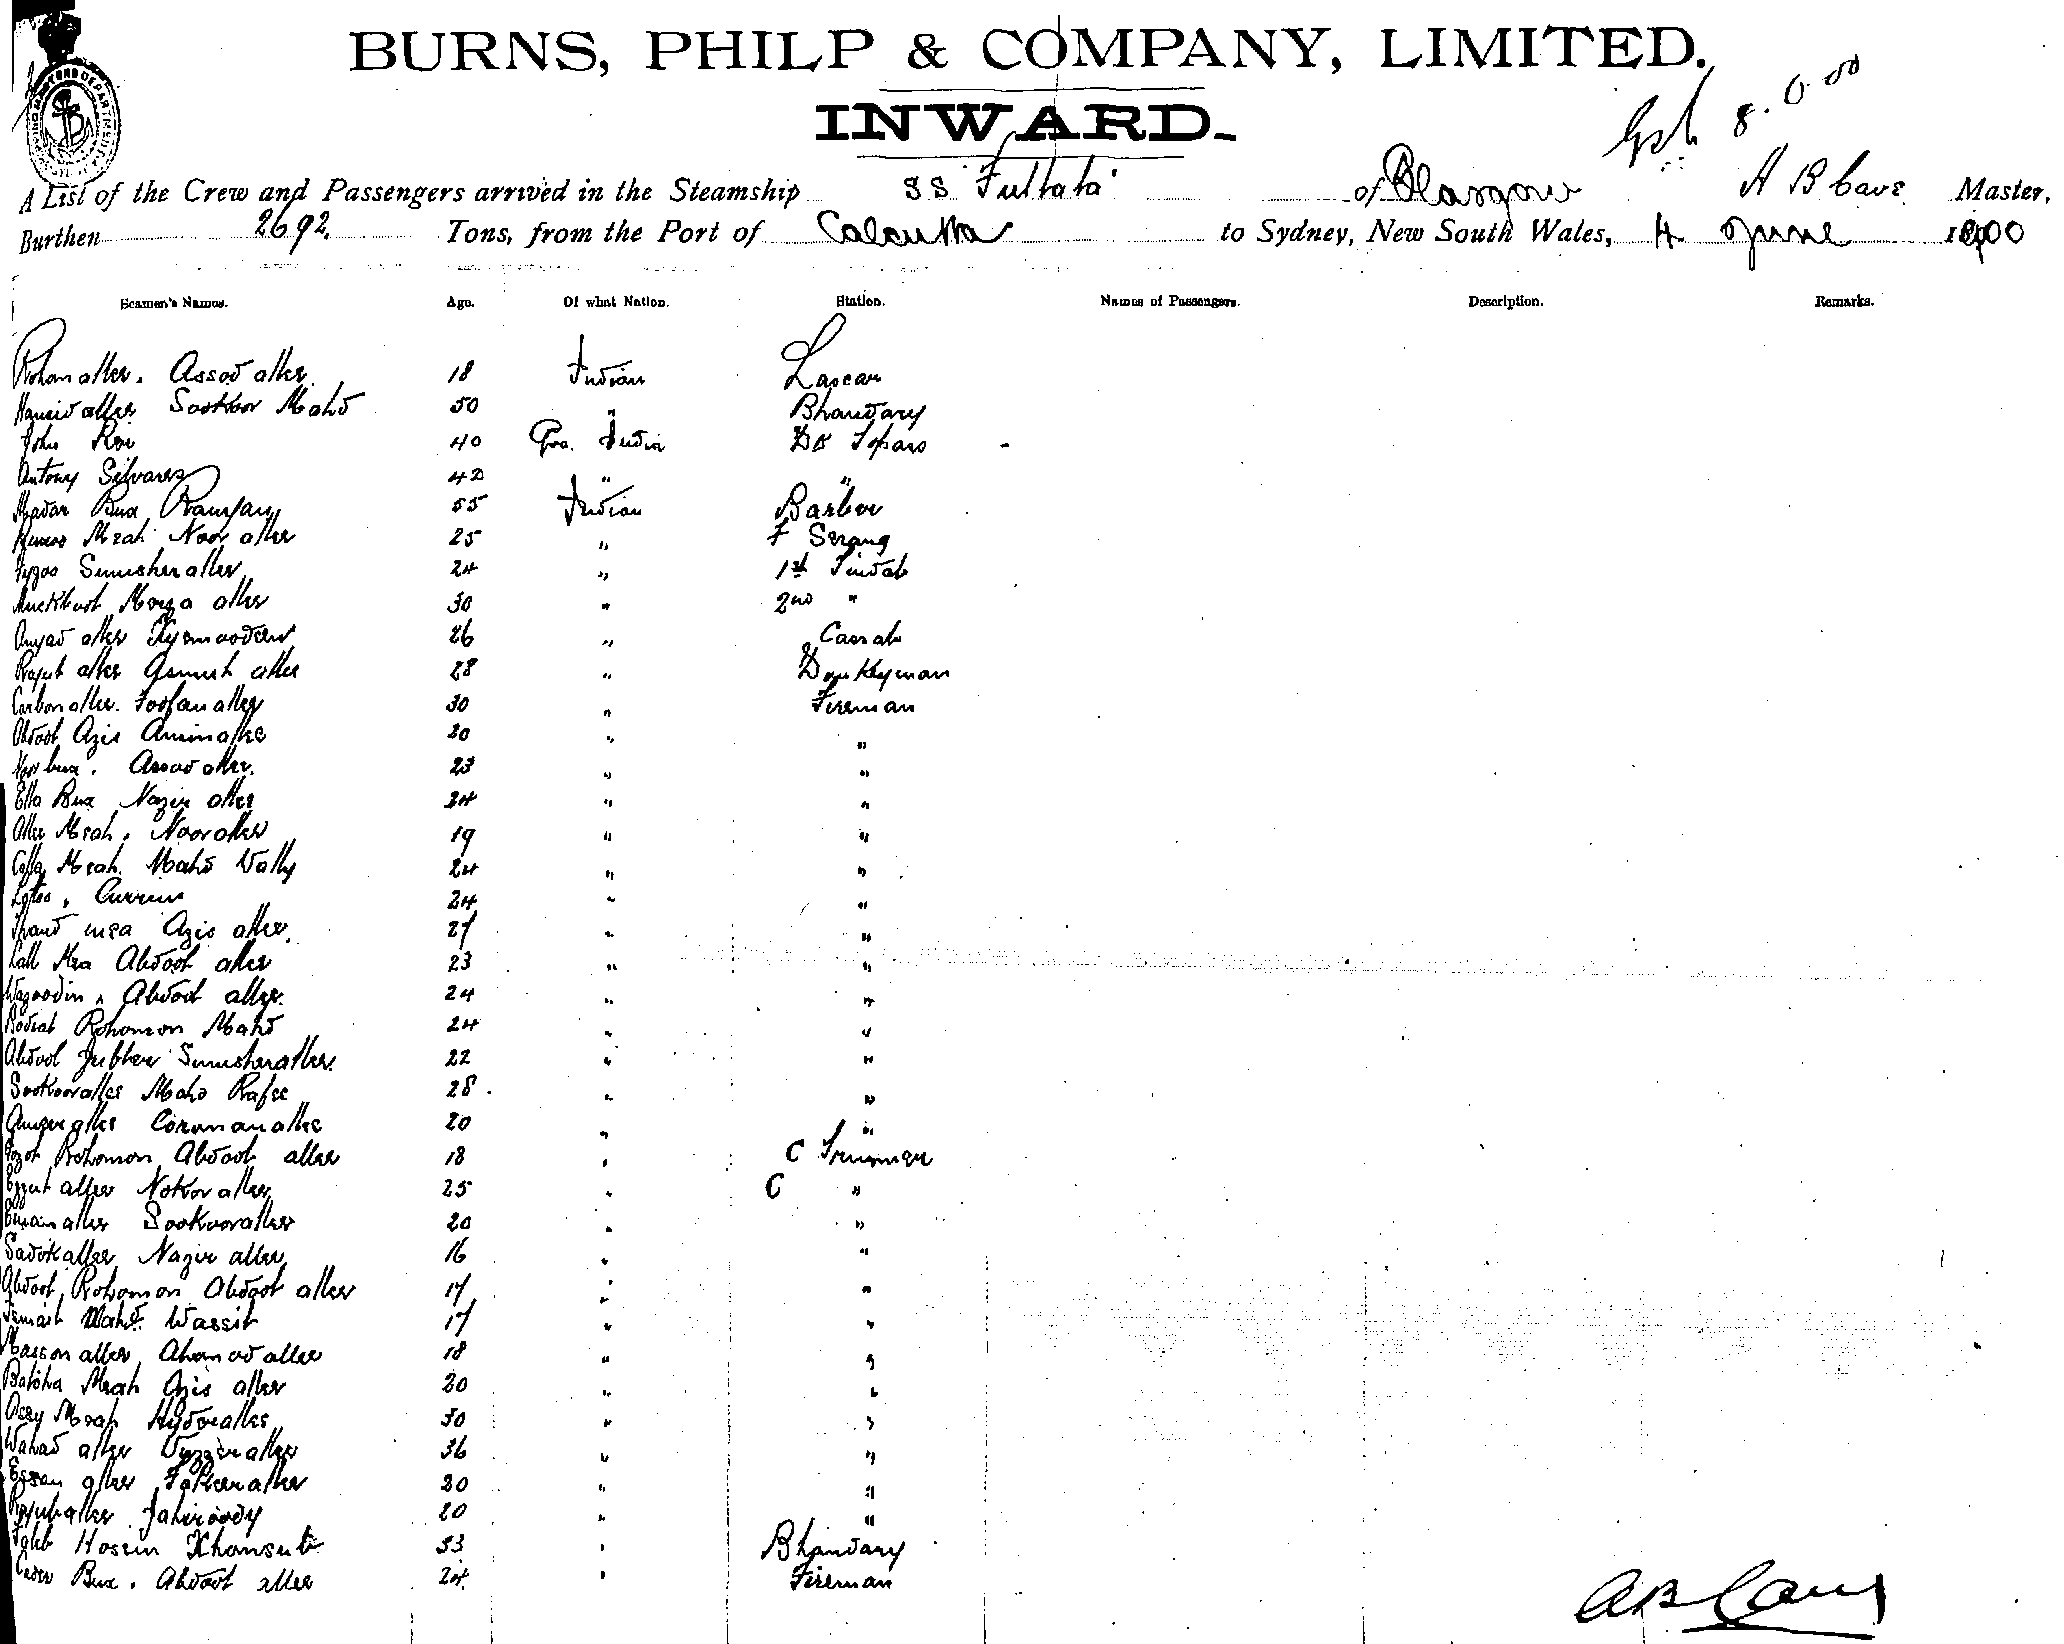 BURNS, PHILP & COMPANY, LIMITED.
INWARD.
8.6.00
A List of the Crew and Passengers arrived in the Steamship SS "Fultala" of Glasgow A B Cave Master,
Burthen 2692 Tons, from the Port of Calcutta to Sydney, New South Wales, 4 June 1900
Seamen's Names. Age. Of what Nation. Station. Names of Passengers. Description. Remarks.
Rohomaller. Assod aller. 18 Indian Lascar
Hamid aller Sookoor Mahd 50 " Bhandary
John Roi 40 Goa. India Dk Topass
Antony Silvares 42 " "
Madar Bux Ramjan 55 Indian Barber
Meah Noor aller 25 " F Serang
Fyzoo Sumsheraller 24 " 1st Tindal
Muckbool Meyza aller 30 " 2nd "
Amjad aller Kyemoodeen 26 " Cassab
Rajub aller Asmut aller 28 " Donkeyman
Corbonaller. Toofanaller 30 " Fireman
Abdool Azis Amimaller 20 " "
Noor bux. Assad aller. 23 " "
Ella Bux Nazir aller 24 " "
Aller Meah. Nooraller 19 " "
Meah. Mahd Wally 24 " "
24 " "
Azis aller. 27 " "
Lall Mea Abdool aller 23 " "
Wazoodin. Abdool aller. 24 " "
Rohomon Mahd 24 " "
Abdool Jubber Sumsheraller. 22 " "
Sookooraller Mahd Rafee 28 " "
Coromanaller 20 " "
Rohomon Abdool aller 18 " C Trimmer
Ezzut aller Nokoraller 25 " C "
Emamaller Sookooraller 20 " "
Sadokaller Nazir aller 16 " "
Abdool Rohomon Abdool aller 17 " "
Ismail Mahd. Wassil 17 " "
Hassonaller Ahamodaller 18 " "
Meah Azis aller 20 " "
Meah Hydoraller 30 " "
Wahad aller Uzzeraller 36 " "
aller Fakeeraller 20 " "
Rajuballer Jahiroody 20 " "
Taleb Hossein 33 " Bhandary
Cader Bux. Abdool aller 24 " Fireman
A B Cave